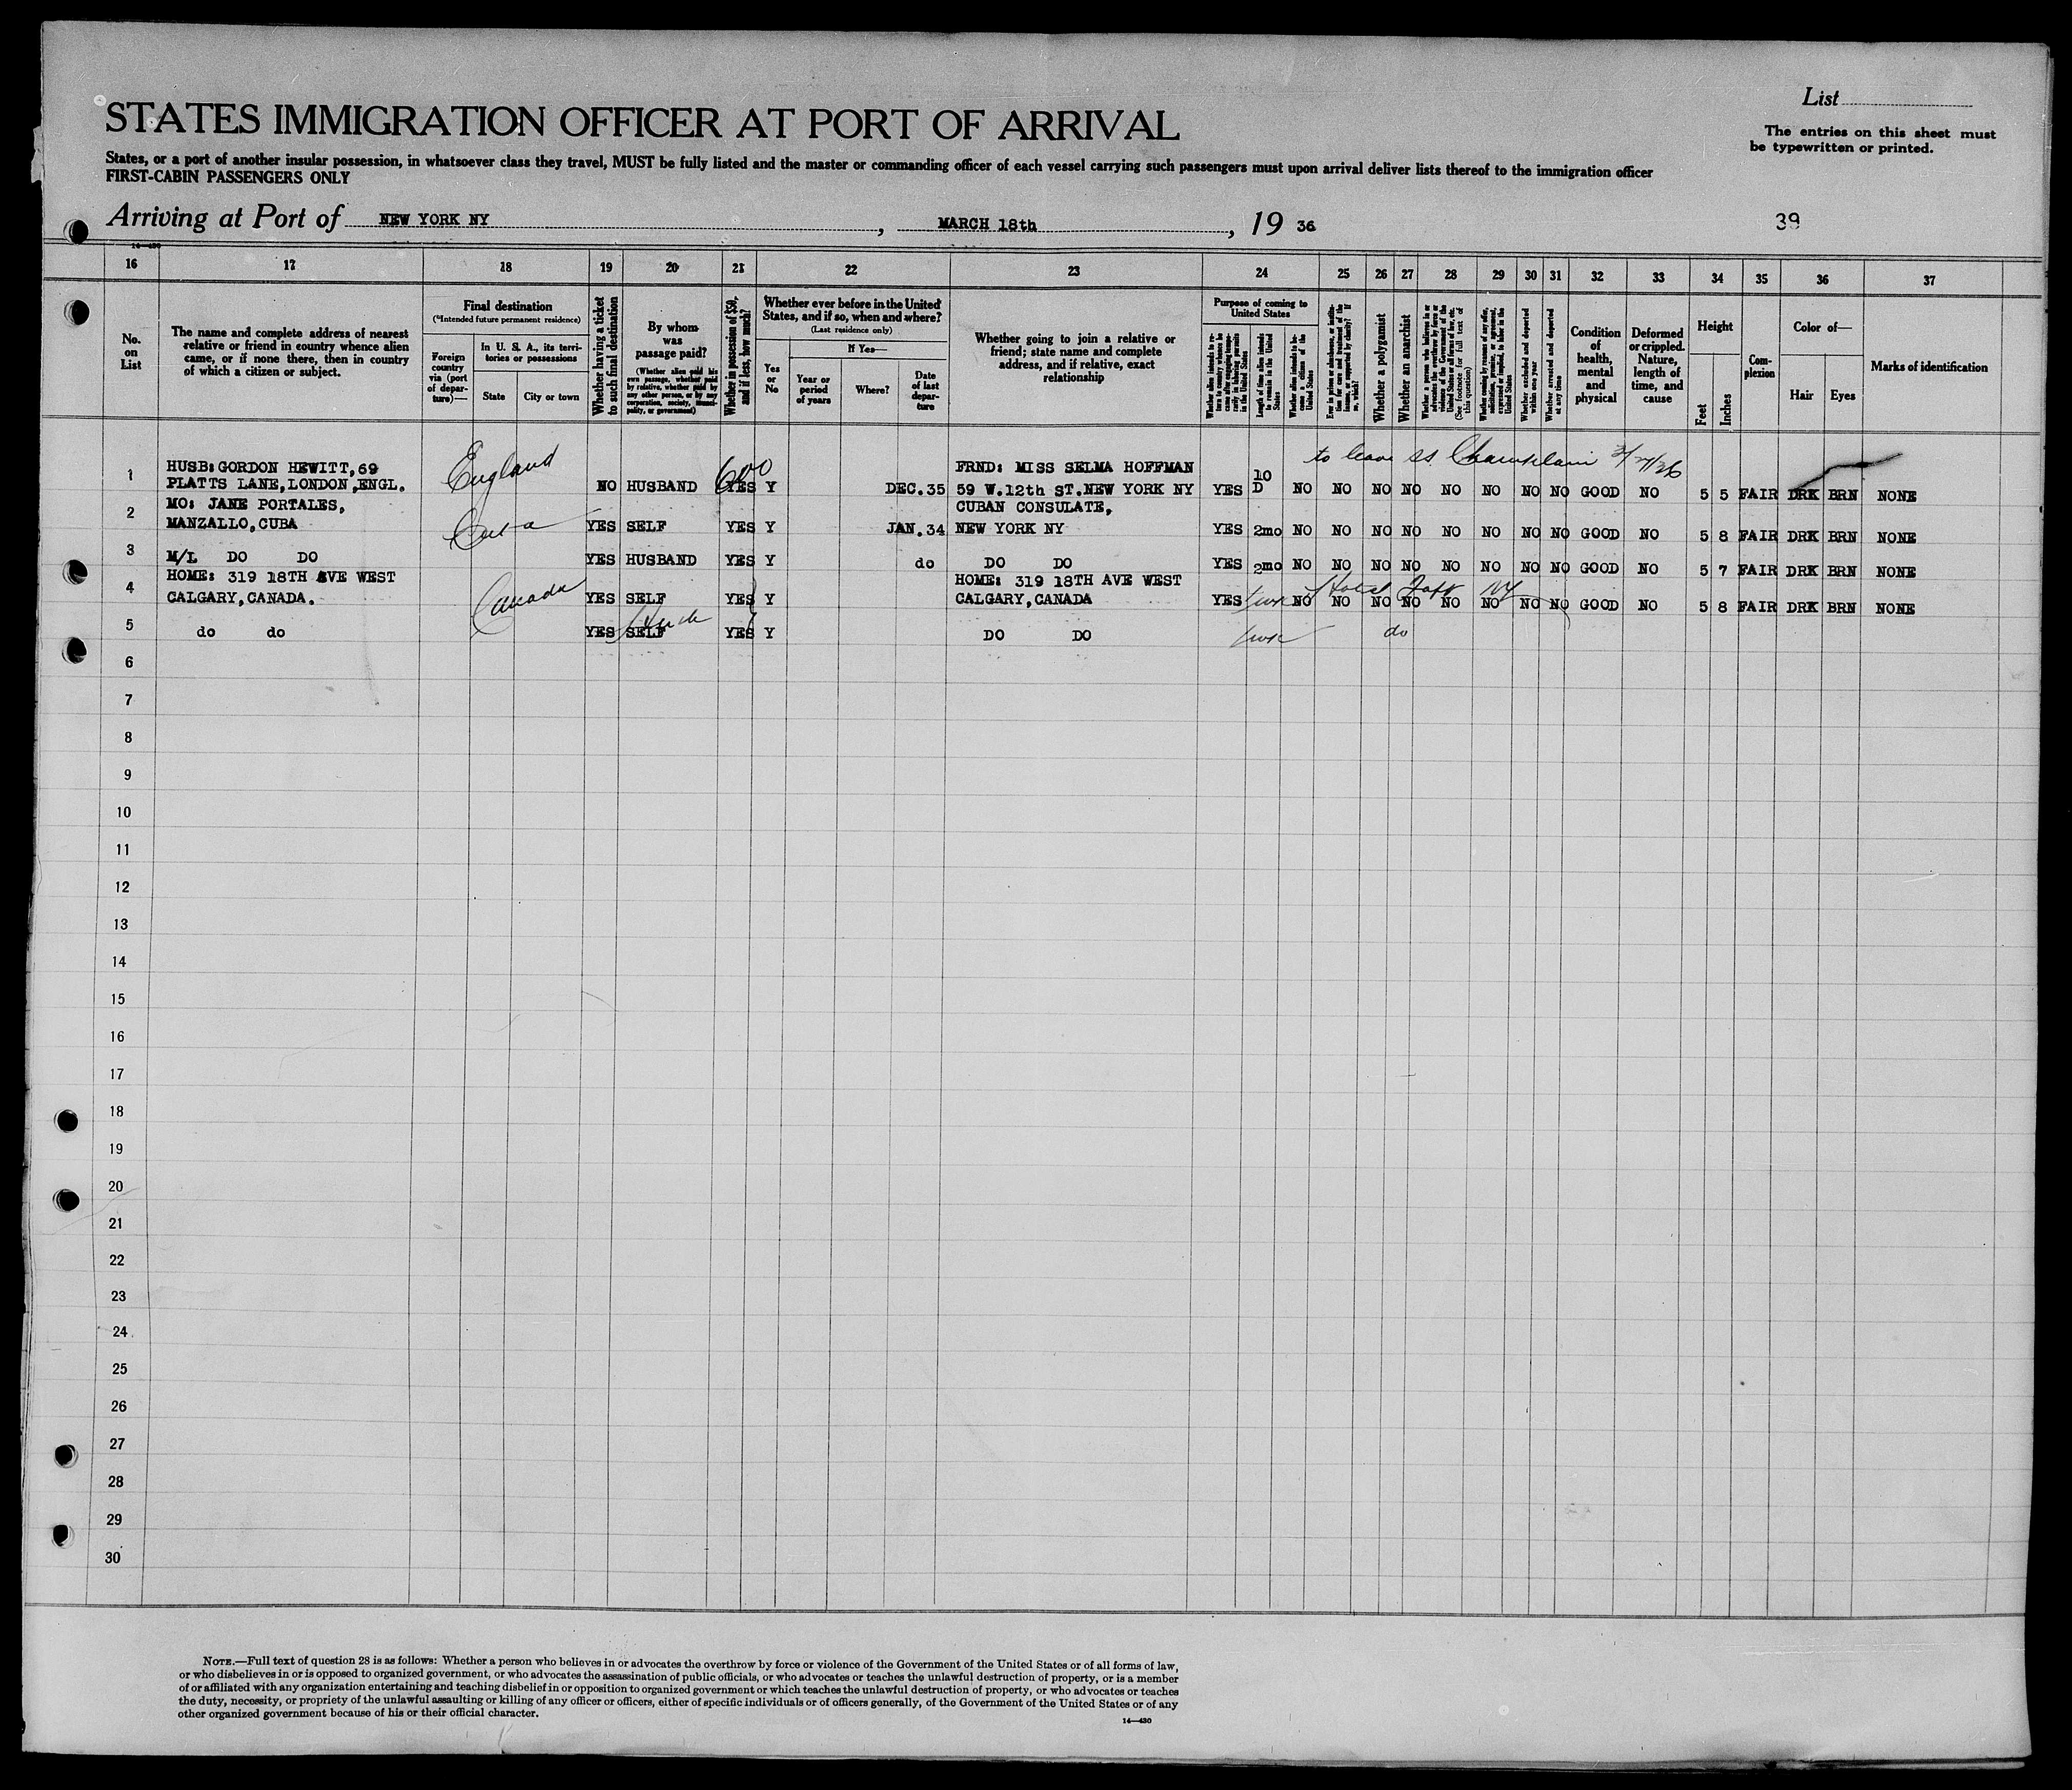 List
STATES IMMIGRATION OFFICER AT PORT OF ARRIVAL
The entries on this sheet must
be typewritten or printed.
States, or a port of another insular possession, in whatsoever class they travel, MUST be fully listed and the master or commanding officer of each vessel carrying such passengers must upon arrival deliver lists thereof to the immigration officer
FIRST-CABIN PASSENGERS ONLY
Arriving at Port of NEW YORK NY, MARCH 18th, 19 36
39
14—430
16 17 18 19 20 21 22 23 24 25 26 27 28 29 30 31 32 33 34 35 36 37
No. on List
The name and complete address of nearest relative or friend in country whence alien came, or if none there, then in country of which a citizen or subject.
Final destination
(*Intended future permanent residence)
Foreign country via (port of departure)—
In U. S. A., its territories or possessions
State
City or town
Whether having a ticket to such final destination
By whom was passage paid?
(Whether alien paid his own passage, whether paid by relative, whether paid by any other person, or by any corporation, society, municipality, or government)
Whether in possession of $50, and if less, how much?
Whether ever before in the United States, and if so, when and where?
(Last residence only)
Yes or No
If Yes—
Year or period of years
Where?
Date of last departure
Whether going to join a relative or friend; state name and complete address, and if relative, exact relationship
Purpose of coming to United States
Whether alien intends to return to country whence he came after engaging temporarily in laboring pursuits in the United States
Length of time alien intends to remain in the United States
Whether alien intends to become a citizen of the United States
Ever in prison or almshouse, or institution for care and treatment of the insane, or supported by charity? If so, which?
Whether a polygamist
Whether an anarchist
Whether a person who believes in or advocates the overthrow by force or violence of the Government of the United States or all forms of law, etc. (See footnote for full text of this question)
Whether coming by reason of any offer, solicitation, promise, or agreement, expressed or implied, to labor in the United States
Whether excluded and deported within one year
Whether arrested and deported at any time
Condition of health, mental and physical
Deformed or crippled. Nature, length of time, and cause
Height
Feet
Inches
Complexion
Color of—
Hair
Eyes
Marks of identification
to leave ss Champlain
1 HUSB: GORDON HEWITT, 69 England 600 FRND: MISS SELMA HOFFMAN 10
PLATTS LANE, LONDON, ENGL. NO HUSBAND YES Y DEC.35 59 W.12th ST.NEW YORK NY YES D NO NO NO NO NO NO NO NO GOOD NO 5 5 FAIR DRK BRN NONE
2 MO: JANE PORTALES, CUBAN CONSULATE,
MANZALLO, CUBA Cuba YES SELF YES Y JAN.34 NEW YORK NY YES 2mo NO NO NO NO NO NO NO NO GOOD NO 5 8 FAIR DRK BRN NONE
3 M/L DO DO YES HUSBAND YES Y do DO DO YES 2mo NO NO NO NO NO NO NO NO GOOD NO 5 7 FAIR DRK BRN NONE
4 HOME: 319 18TH AVE WEST HOME: 319 18TH AVE WEST Hotel Taft NY
CALGARY, CANADA. Canada YES SELF YES Y CALGARY, CANADA YES NO NO NO NO NO NO NO NO GOOD NO 5 8 FAIR DRK BRN NONE
5 do do YES SELF YES Y DO DO do
6
7
8
9
10
11
12
13
14
15
16
17
18
19
20
21
22
23
24
25
26
27
28
29
30
NOTE.—Full text of question 28 is as follows: Whether a person who believes in or advocates the overthrow by force or violence of the Government of the United States or of all forms of law,
or who disbelieves in or is opposed to organized government, or who advocates the assassination of public officials, or who advocates or teaches the unlawful destruction of property, or is a member
of or affiliated with any organization entertaining and teaching disbelief in or opposition to organized government or which teaches the unlawful destruction of property, or who advocates or teaches
the duty, necessity, or propriety of the unlawful assaulting or killing of any officer or officers, either of specific individuals or of officers generally, of the Government of the United States or of any
other organized government because of his or their official character.
14—430